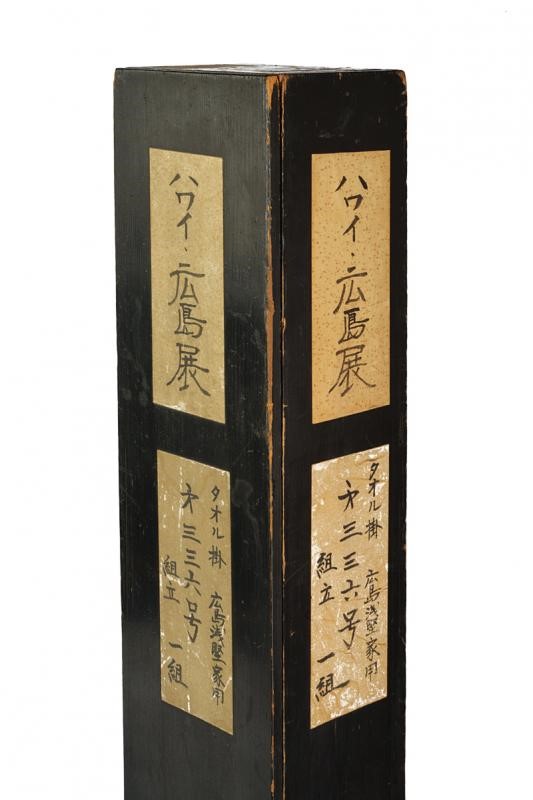 ハワイ・広島展
タオル掛 広島浅家用
才三三六号
組立 一組
ハワイ・広島展
タオル掛 広島浅家用
才三三六号
組立 一組